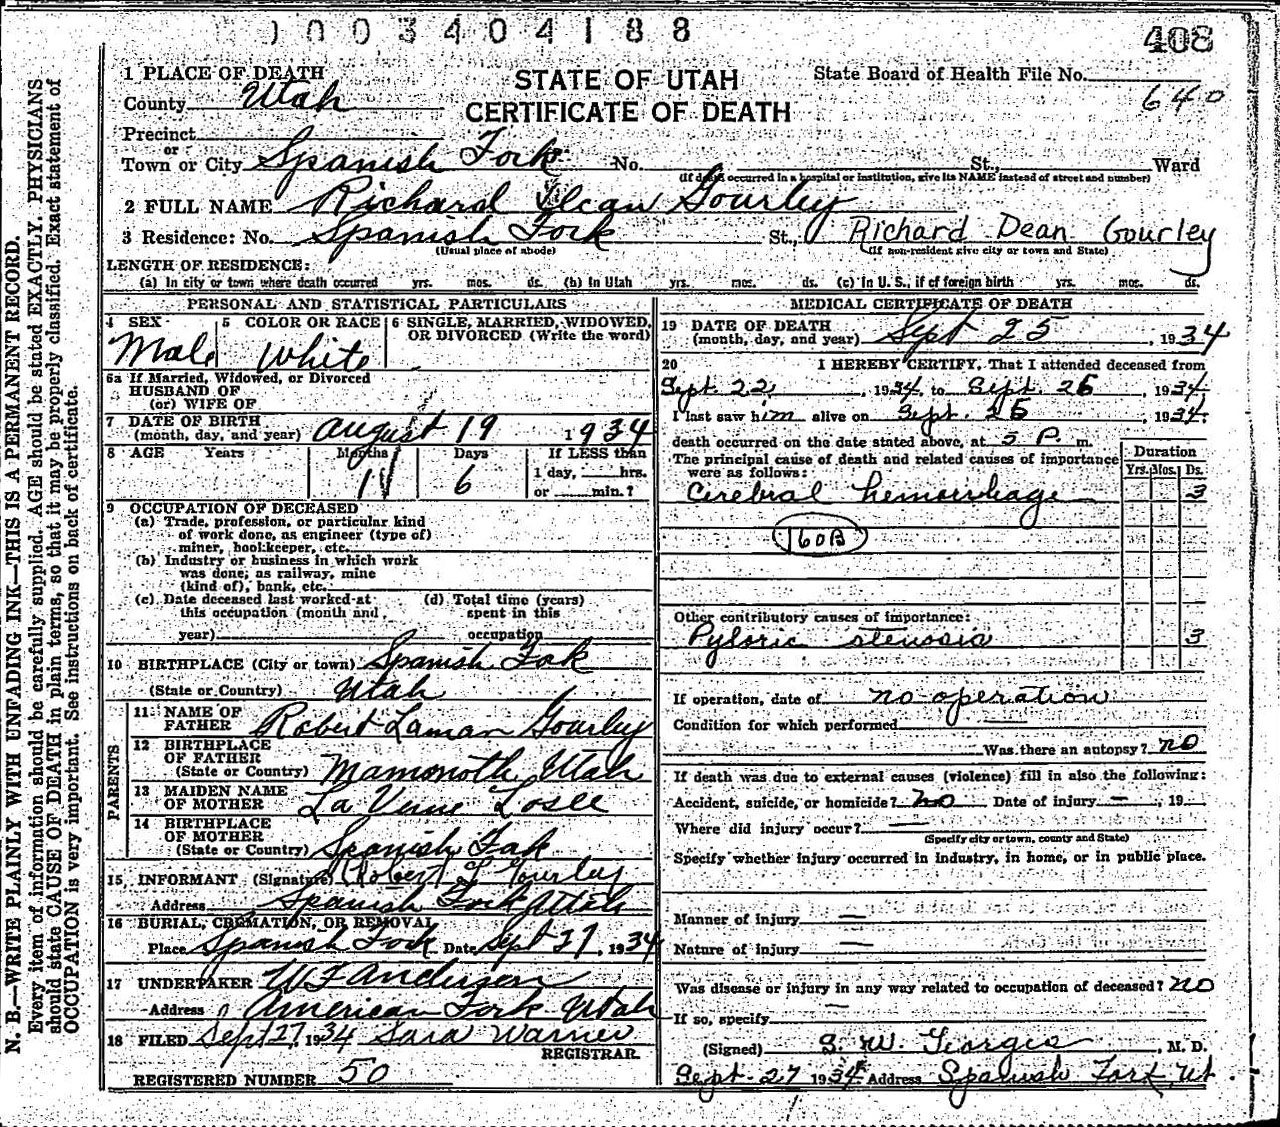 1003404188
408
1 PLACE OF DEATH
STATE OF UTAH
State Board of Health File No.
County Utah
CERTIFICATE OF DEATH
640
Precinct
or
Town or City Spanish Fork No. St. Ward
(If death occurred in a hospital or institution, give its NAME instead of street and number)
2 FULL NAME Richard Dean Gourley
3 Residence: No. Spanish Fork St., Richard Dean Gourley
(Usual place of abode) (If non-resident give city or town and State)
LENGTH OF RESIDENCE:
(a) In city or town where death occurred yrs. mos. ds. (b) In Utah yrs. mos. ds. (c) In U. S., if of foreign birth yrs. mos. ds.
PERSONAL AND STATISTICAL PARTICULARS
4 SEX 5 COLOR OR RACE 6 SINGLE, MARRIED, WIDOWED,
OR DIVORCED (Write the word)
Male White
6a If Married, Widowed, or Divorced
HUSBAND OF
(or) WIFE OF
7 DATE OF BIRTH
(month, day, and year) August 19 1934
8 AGE Years Months Days If LESS than
1 day, hrs.
or min.?
1 6
9 OCCUPATION OF DECEASED
(a) Trade, profession, or particular kind
of work done, as engineer (type of)
miner, bookkeeper, etc.
(b) Industry or business in which work
was done, as railway, mine
(kind of), bank, etc.
(c) Date deceased last worked at (d) Total time (years)
this occupation (month and spent in this
year) occupation
10 BIRTHPLACE (City or town) Spanish Fork
(State or Country) Utah
PARENTS
11 NAME OF
FATHER Robert Laman Gourley
12 BIRTHPLACE
OF FATHER
(State or Country) Mamonoth Utah
13 MAIDEN NAME
OF MOTHER La Verne Losee
14 BIRTHPLACE
OF MOTHER
(State or Country) Spanish Fork
15 INFORMANT (Signature) Robert L Gourley
Address Spanish Fork Utah
16 BURIAL, CREMATION, OR REMOVAL
Place Spanish Fork Date Sept 27, 1934
17 UNDERTAKER W F Anderson
Address American Fork Utah
18 FILED Sept 27, 1934 Sara Warner
REGISTRAR
REGISTERED NUMBER 50
MEDICAL CERTIFICATE OF DEATH
19 DATE OF DEATH
(month, day, and year) Sept 25, 1934
20 I HEREBY CERTIFY, That I attended deceased from
Sept. 22, 1934, to Sept. 25, 1934.
I last saw him alive on Sept. 25, 1934.
death occurred on the date stated above, at 5 P. m.
The principal cause of death and related causes of importance
were as follows:
Duration
Yrs. Mos. Ds.
Cerebral hemorrhage 3
160B
Other contributory causes of importance:
Pyloric stenosis 3
If operation, date of no operation
Condition for which performed
Was there an autopsy? no
If death was due to external causes (violence) fill in also the following:
Accident, suicide, or homicide? no Date of injury — , 19
Where did injury occur? —
(Specify city or town, county and State)
Specify whether injury occurred in industry, in home, or in public place.
Manner of injury —
Nature of injury —
Was disease or injury in any way related to occupation of deceased? no
If so, specify —
(Signed) S. W. Georges, M. D.
Sept. 27 1934 Address Spanish Fork, Ut.
N. B.—WRITE PLAINLY WITH UNFADING INK—THIS IS A PERMANENT RECORD.
Every item of information should be carefully supplied. AGE should be stated EXACTLY. PHYSICIANS
should state CAUSE OF DEATH in plain terms, so that it may be properly classified. Exact statement of
OCCUPATION is very important. See instructions on back of certificate.